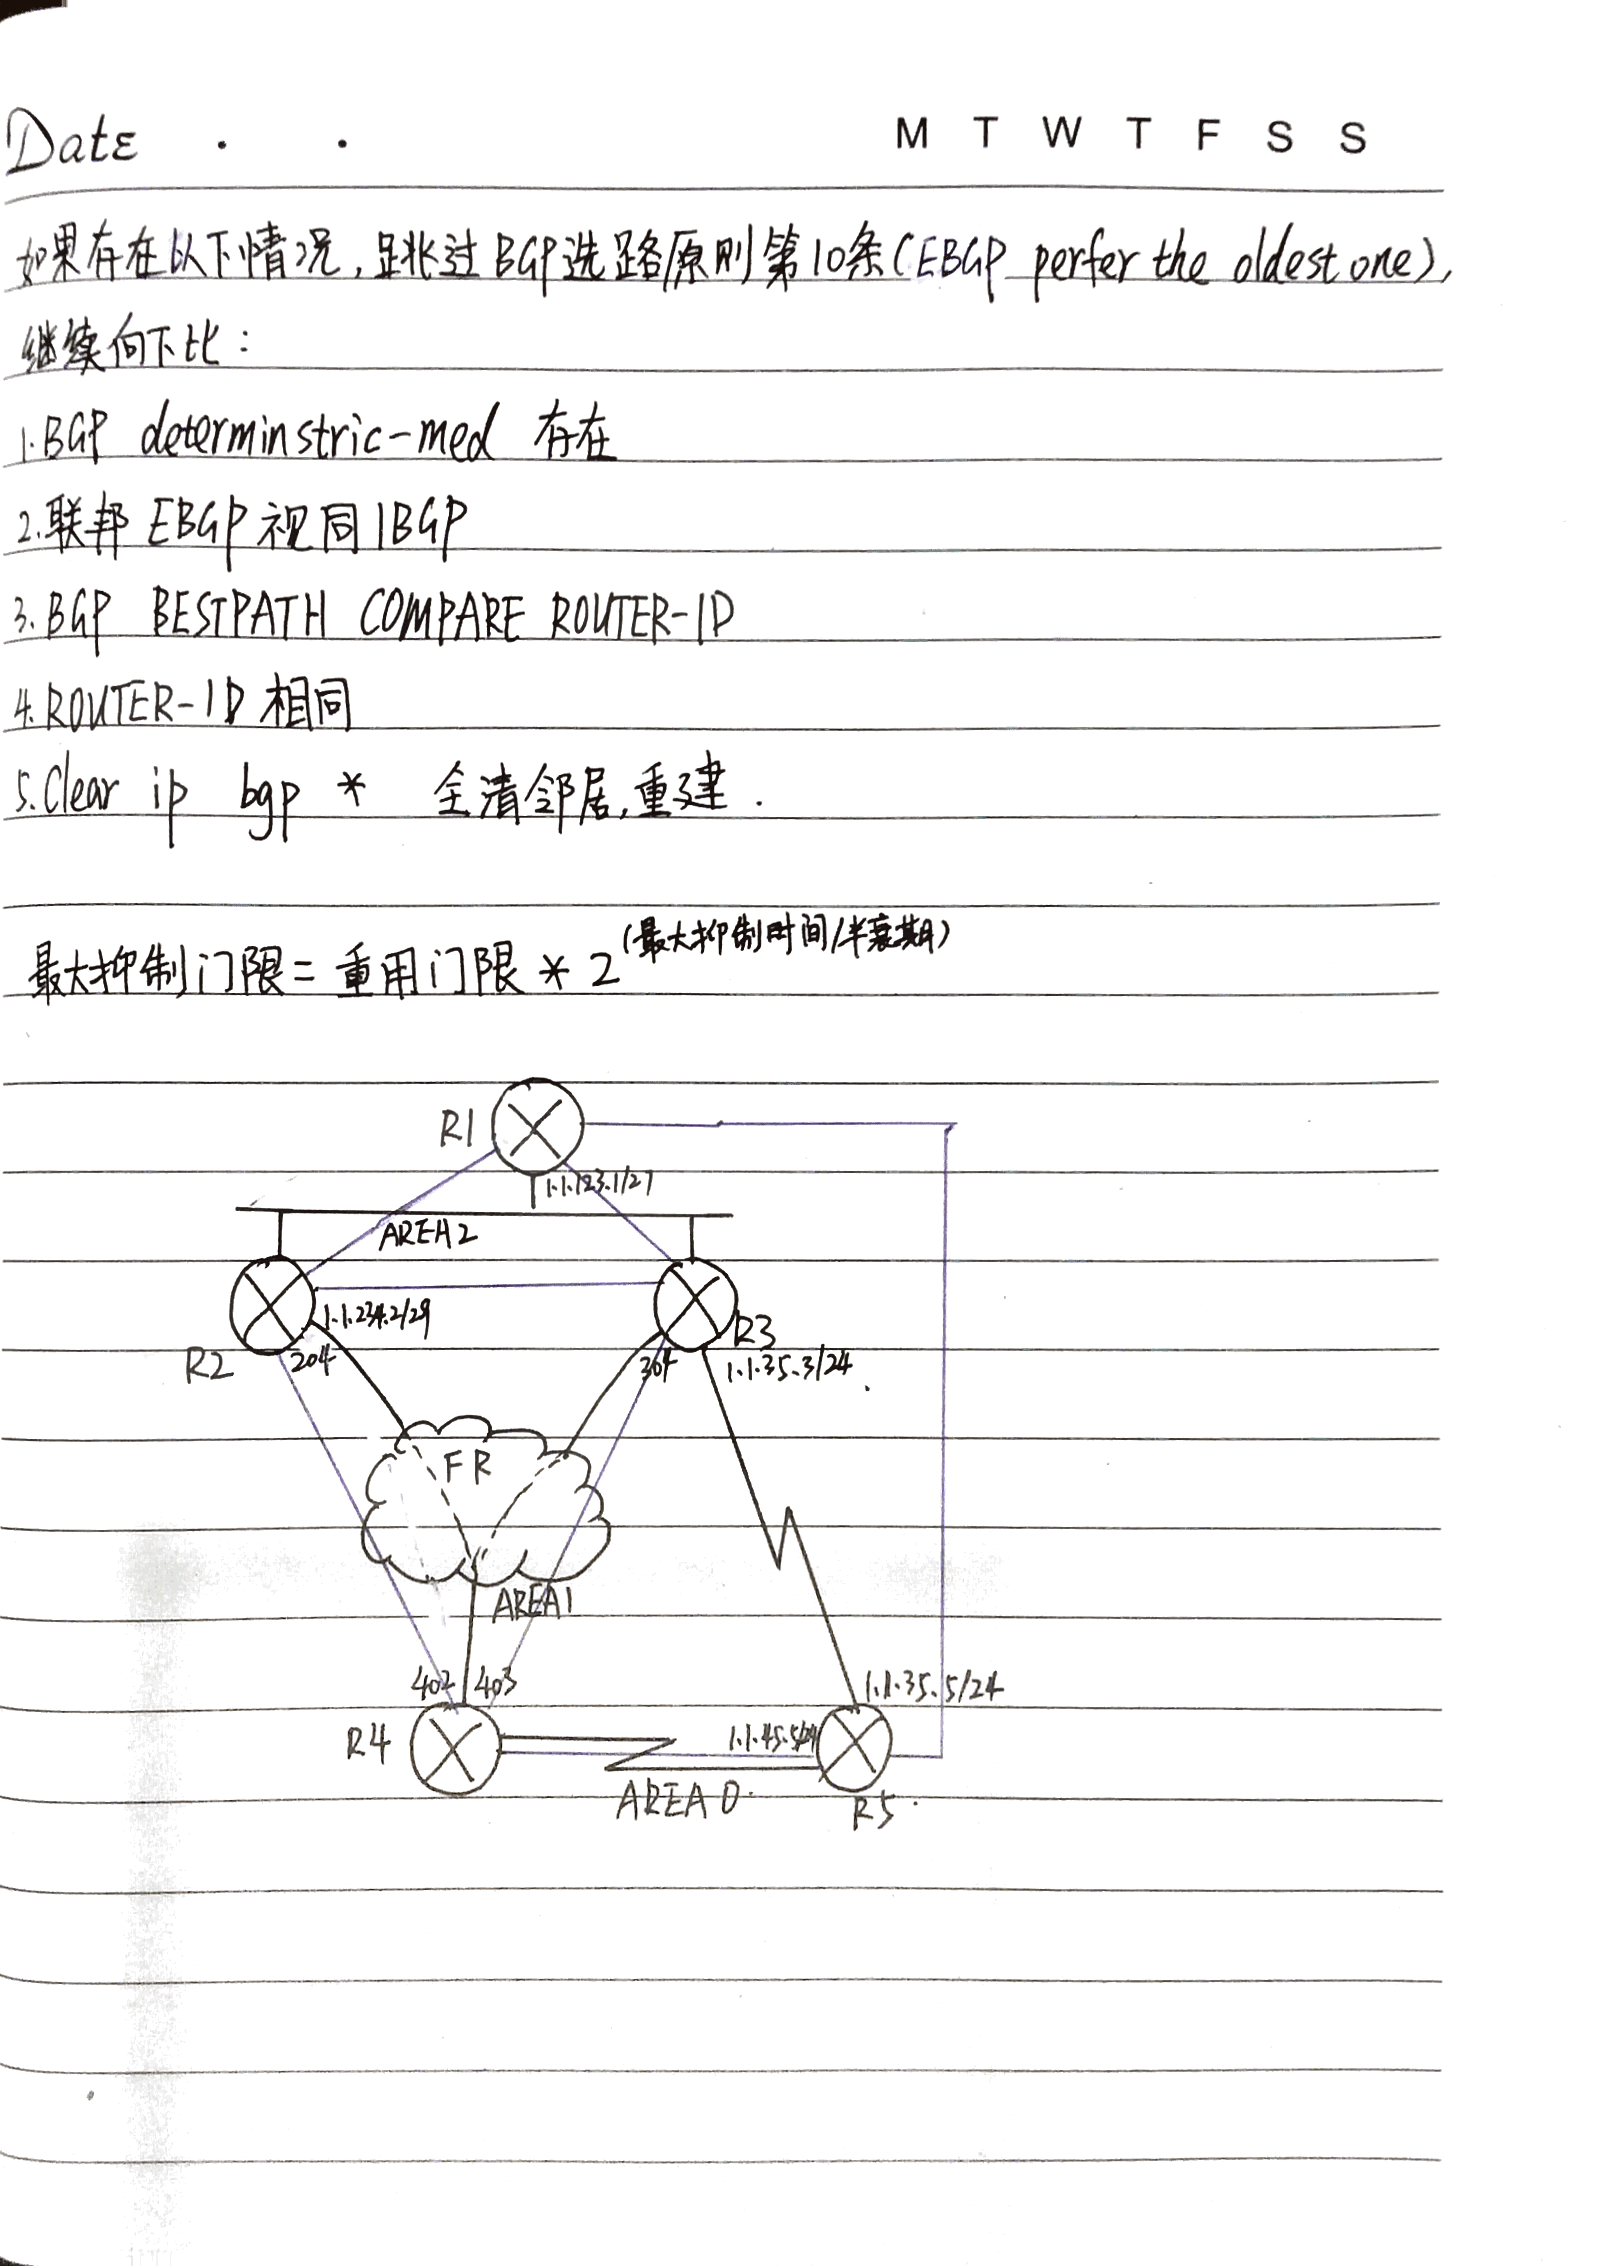 Date . .
M T W T F S S
如果存在以下情况,跳过BGP选路原则第10条(EBGP perfer the oldest one),
继续向下比:
1.BGP determinstric-med 存在
2.联邦 EBGP 视同 IBGP
3.BGP BESTPATH COMPARE ROUTER-ID
4.ROUTER-ID 相同
5.Clear ip bgp * 全清邻居,重建.
最大抑制门限= 重用门限 * 2(最大抑制时间/半衰期)
R1
1.1.123.1/27
AREA2
1.1.234.2/29
R3
R2
204
304
1.1.35.3/24
FR
AREA1
402 403
1.1.35.5/24
R4
1.1.45.5/24
AREA 0
R5